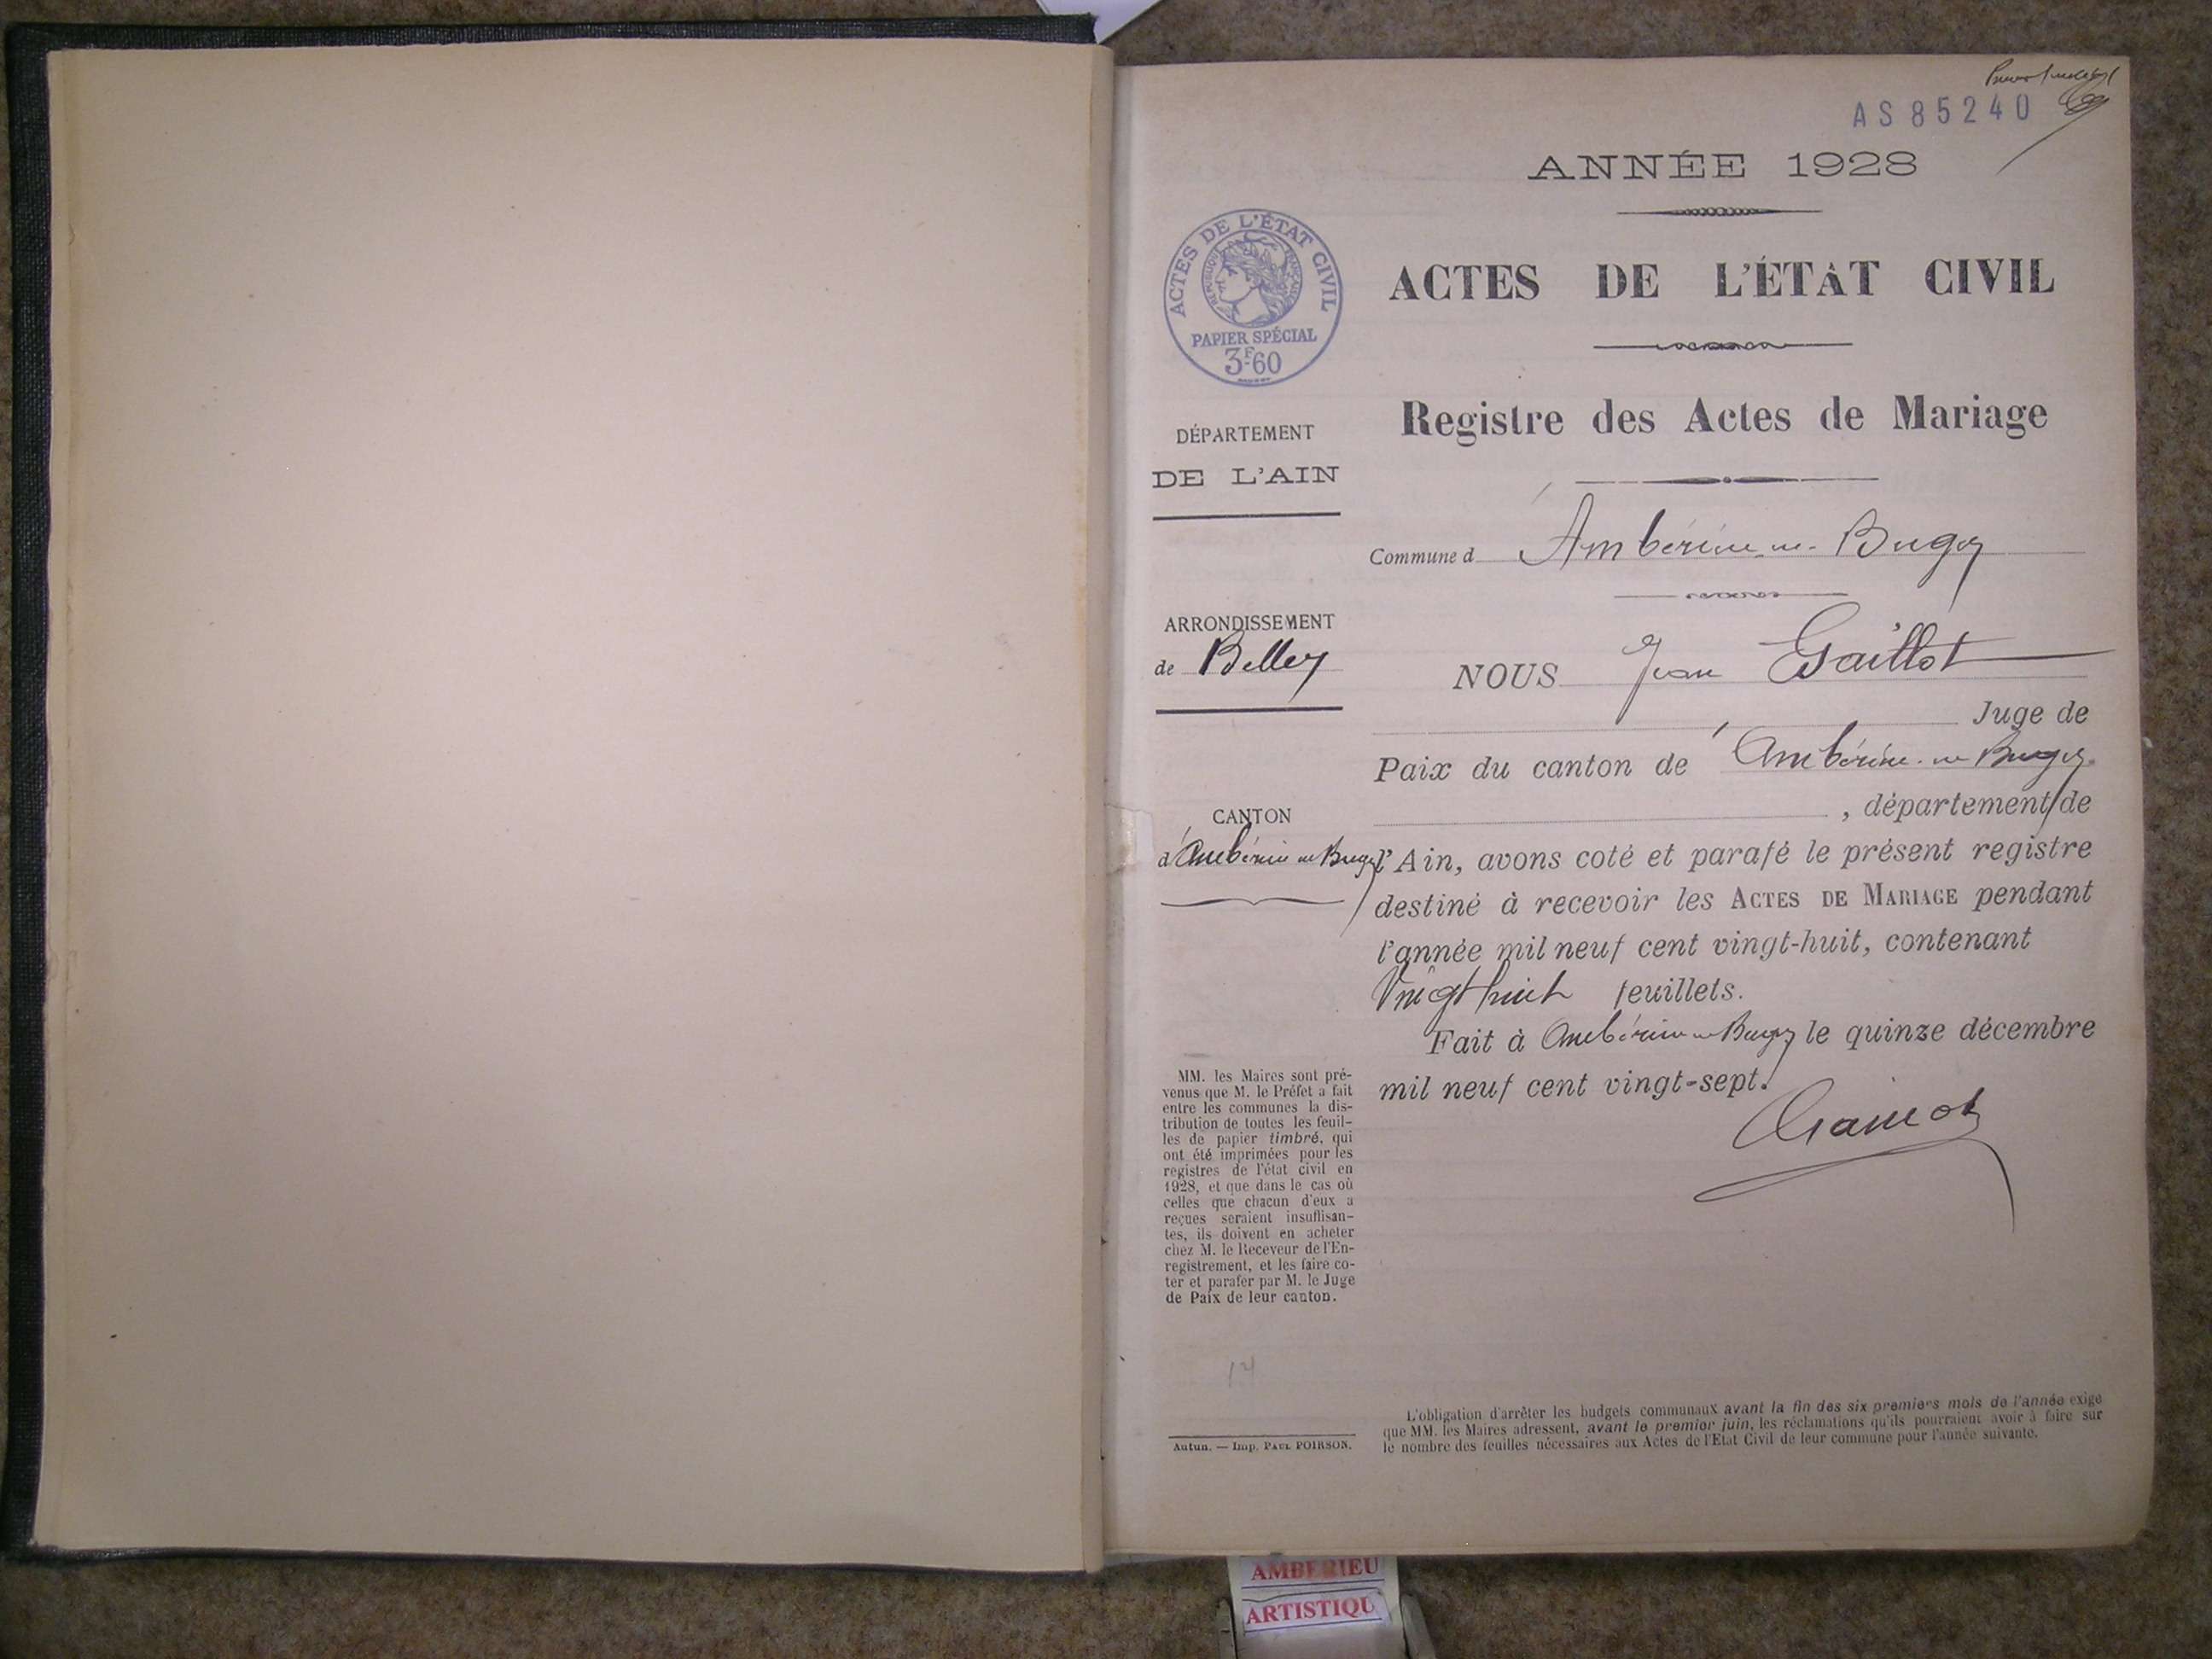 AS 85240
ANNÉE 1928
ACTES DE L'ÉTAT CIVIL
RÉPUBLIQUE FRANÇAISE
PAPIER SPÉCIAL
3F.60
ACTES DE L'ÉTAT CIVIL
Registre des Actes de Mariage
DÉPARTEMENT
DE L'AIN
ARRONDISSEMENT
de Belley
CANTON
d'Ambérieu en Bugey
MM. les Maires sont pré-
venus que M. le Préfet a fait
entre les communes la dis-
tribution de toutes les feuil-
les de papier timbré, qui
ont été imprimées pour les
registres de l'état civil en
1928, et que dans le cas où
celles que chacun d'eux a
reçues seraient insuffisan-
tes, ils doivent en acheter
chez M. le Receveur de l'En-
registrement, et les faire co-
ter et parafer par M. le Juge
de Paix de leur canton.
14
Autun. — Imp. PAUL POIRSON.
Commune d'Ambérieu-en-Bugey
NOUS Jean Gaillot
Juge de
Paix du canton d'Ambérieu-en Bugey
, département de
l'Ain, avons coté et parafé le présent registre
destiné à recevoir les ACTES DE MARIAGE pendant
l'année mil neuf cent vingt-huit, contenant
Vingt huit feuillets.
Fait à Ambérieu en Bugey le quinze décembre
mil neuf cent vingt-sept.
L'obligation d'arrêter les budgets communaux avant la fin des six premiers mois de l'année exige
que MM. les Maires adressent, avant le premier juin, les réclamations qu'ils pourraient avoir à faire sur
le nombre des feuilles nécessaires aux Actes de l'Etat Civil de leur commune pour l'année suivante.
AMBERIEU
ARTISTIQU